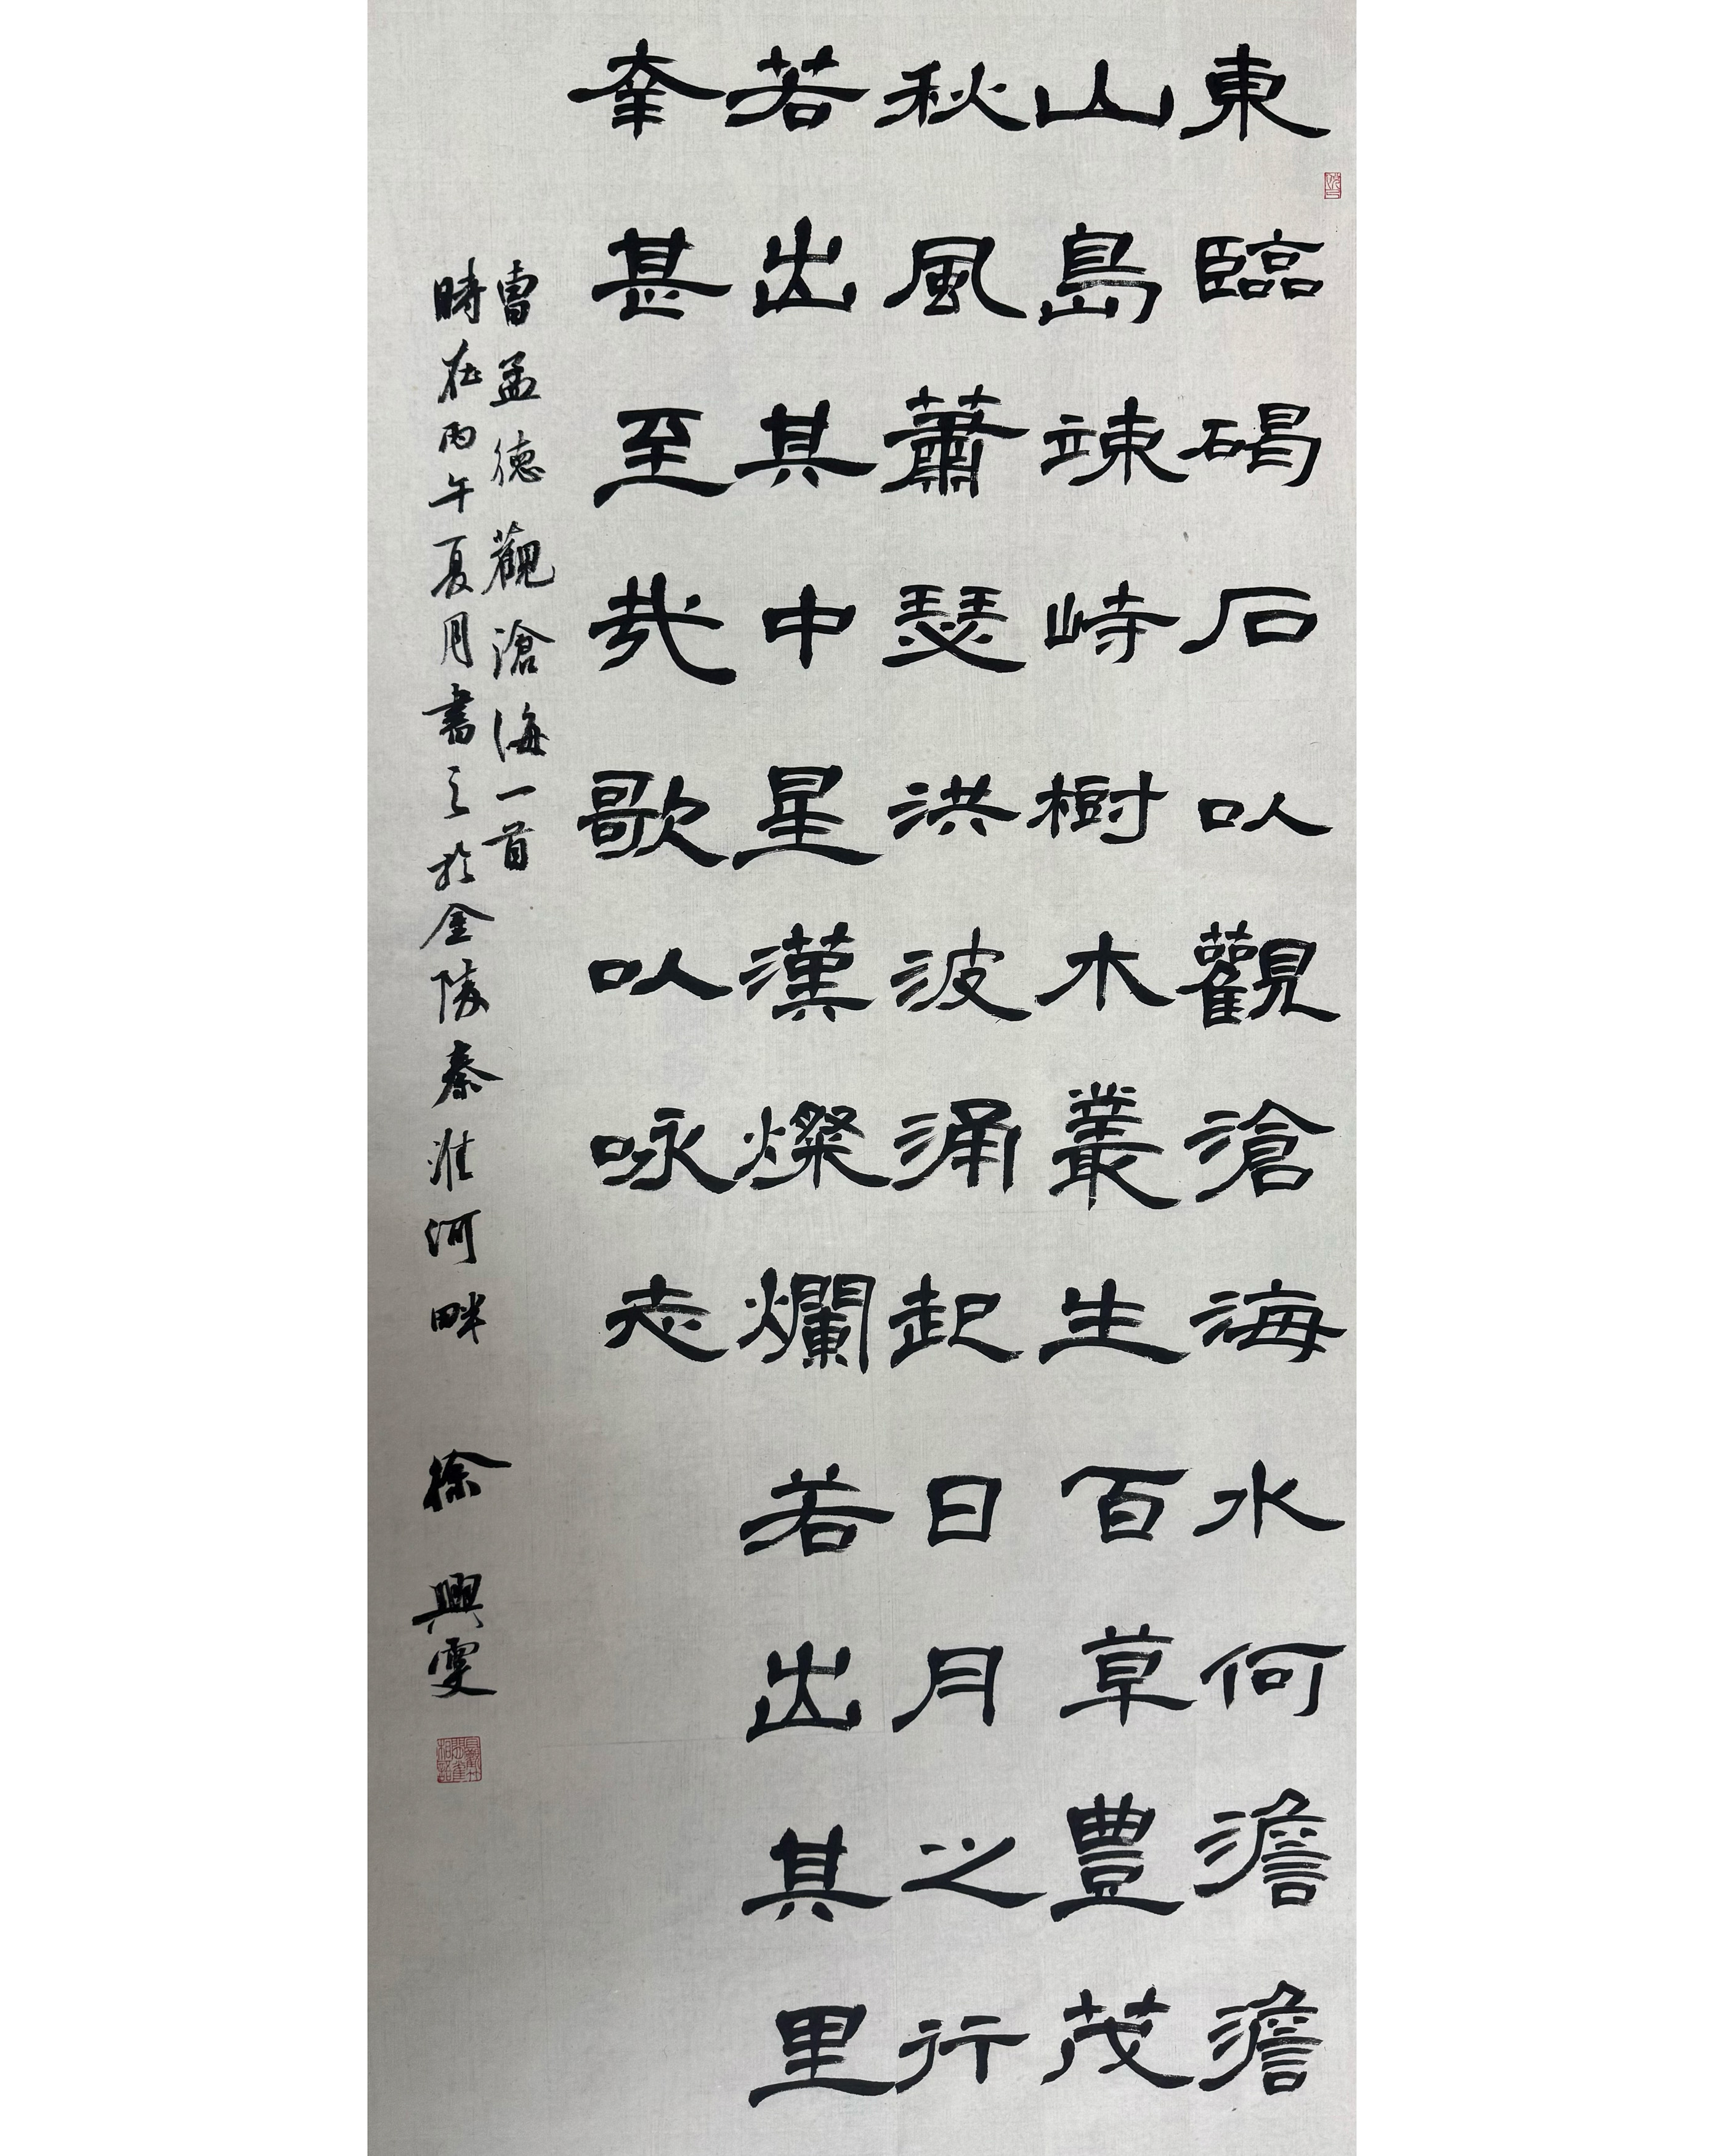 東臨碣石以觀滄海水何澹澹
山島竦峙樹木叢生百草豊茂
秋風蕭瑟洪波涌起日月之行
若出其中星漢燦爛若出其里
幸甚至哉歌以咏志
曹孟德觀滄海一首
時在丙午夏月書之於金陵秦淮河畔 徐興雯